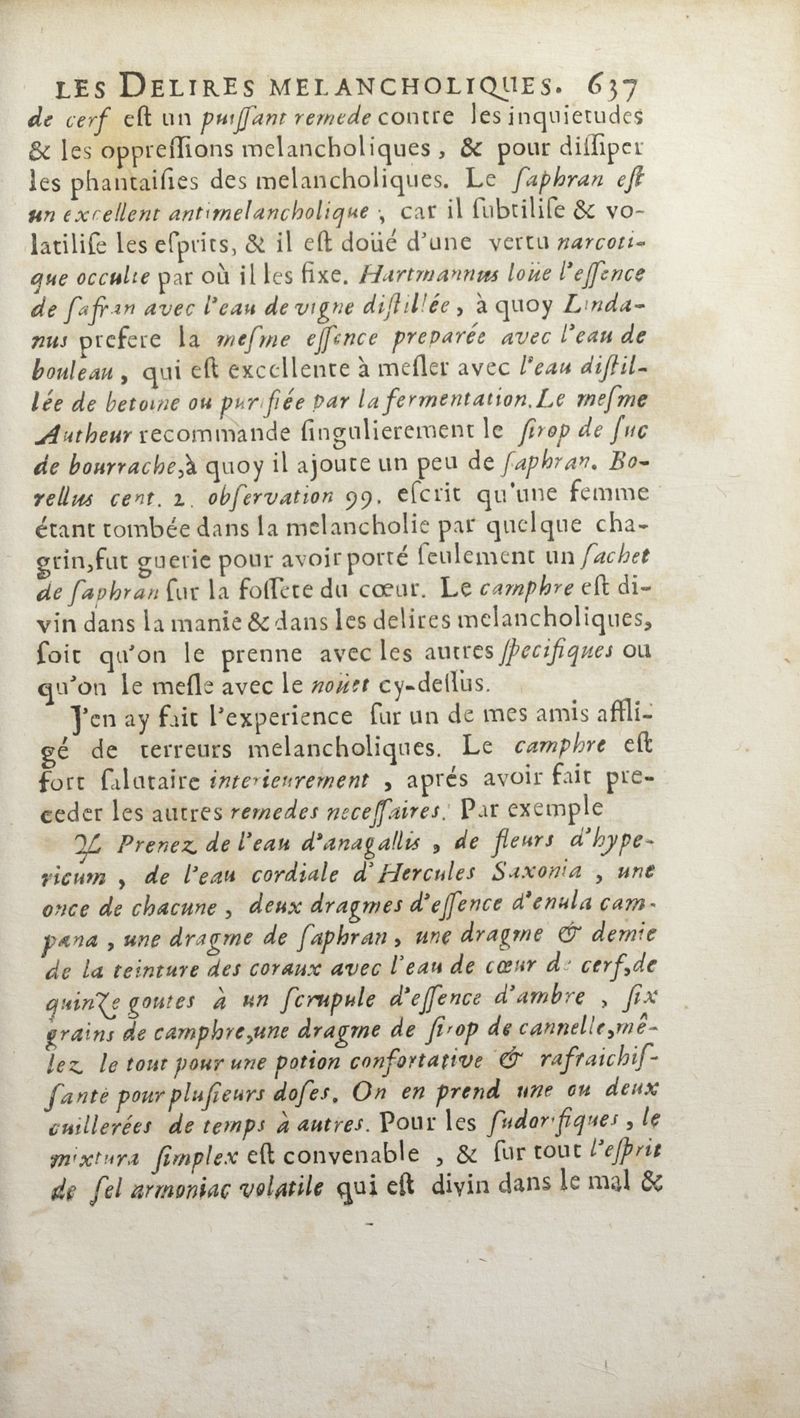 LES DELIRES MELANCHOLIQUES. 637
de cerf eſt un puiſſant remede contre les inquietudes
& les oppreſſions melancholiques, & pour diſſiper
les phantaiſies des melancholiques. Le ſaphran eſt
un excellent antimelancholique ; car il ſubtiliſe & vo-
latiliſe les eſprits, & il eſt doüé d'une vertu narcoti-
que occulte par où il les fixe. Hartmannus loüe l'eſſence
de ſafran avec l'eau de vigne diſtillée, à quoy Linda-
nus prefere la meſme eſſence preparée avec l'eau de
bouleau, qui eſt excellente à meſler avec l'eau diſtil-
lée de betoine ou purifiée par la fermentation. Le meſme
Autheur recommande ſingulierement le ſirop de ſuc
de bourrache, à quoy il ajoute un peu de ſaphran. Bo-
rellus cent. 2. obſervation 99. eſcrit qu'une femme
étant tombée dans la melancholie par quelque cha-
grin, fut guerie pour avoir porté ſeulement un ſachet
de ſaphran ſur la foſſete du cœur. Le camphre eſt di-
vin dans la manie & dans les delires melancholiques,
ſoit qu'on le prenne avec les autres ſpecifiques ou
qu'on le meſle avec le noüet cy-deſſus.
J'en ay fait l'experience ſur un de mes amis affli-
gé de terreurs melancholiques. Le camphre eſt
fort ſalutaire interieurement, aprés avoir fait pre-
ceder les autres remedes neceſſaires. Par exemple
♃ Prenez de l'eau d'anagallis, de fleurs d'hype-
ricum, de l'eau cordiale d'Hercules Saxonia, une
once de chacune, deux dragmes d'eſſence d'enula cam-
pana, une dragme de ſaphran, une dragme & demie
de la teinture des coraux avec l'eau de cœur de cerf, de
quinze goutes à un ſcrupule d'eſſence d'ambre, ſix
grains de camphre, une dragme de ſirop de cannelle, mê-
lez le tout pour une potion confortative & rafraichiſ-
ſante pour pluſieurs doſes. On en prend une ou deux
cuillerées de temps à autres. Pour les ſudorifiques, le
mixtura ſimplex eſt convenable, & ſur tout l'eſprit
de ſel armoniac volatile qui eſt divin dans le mal &